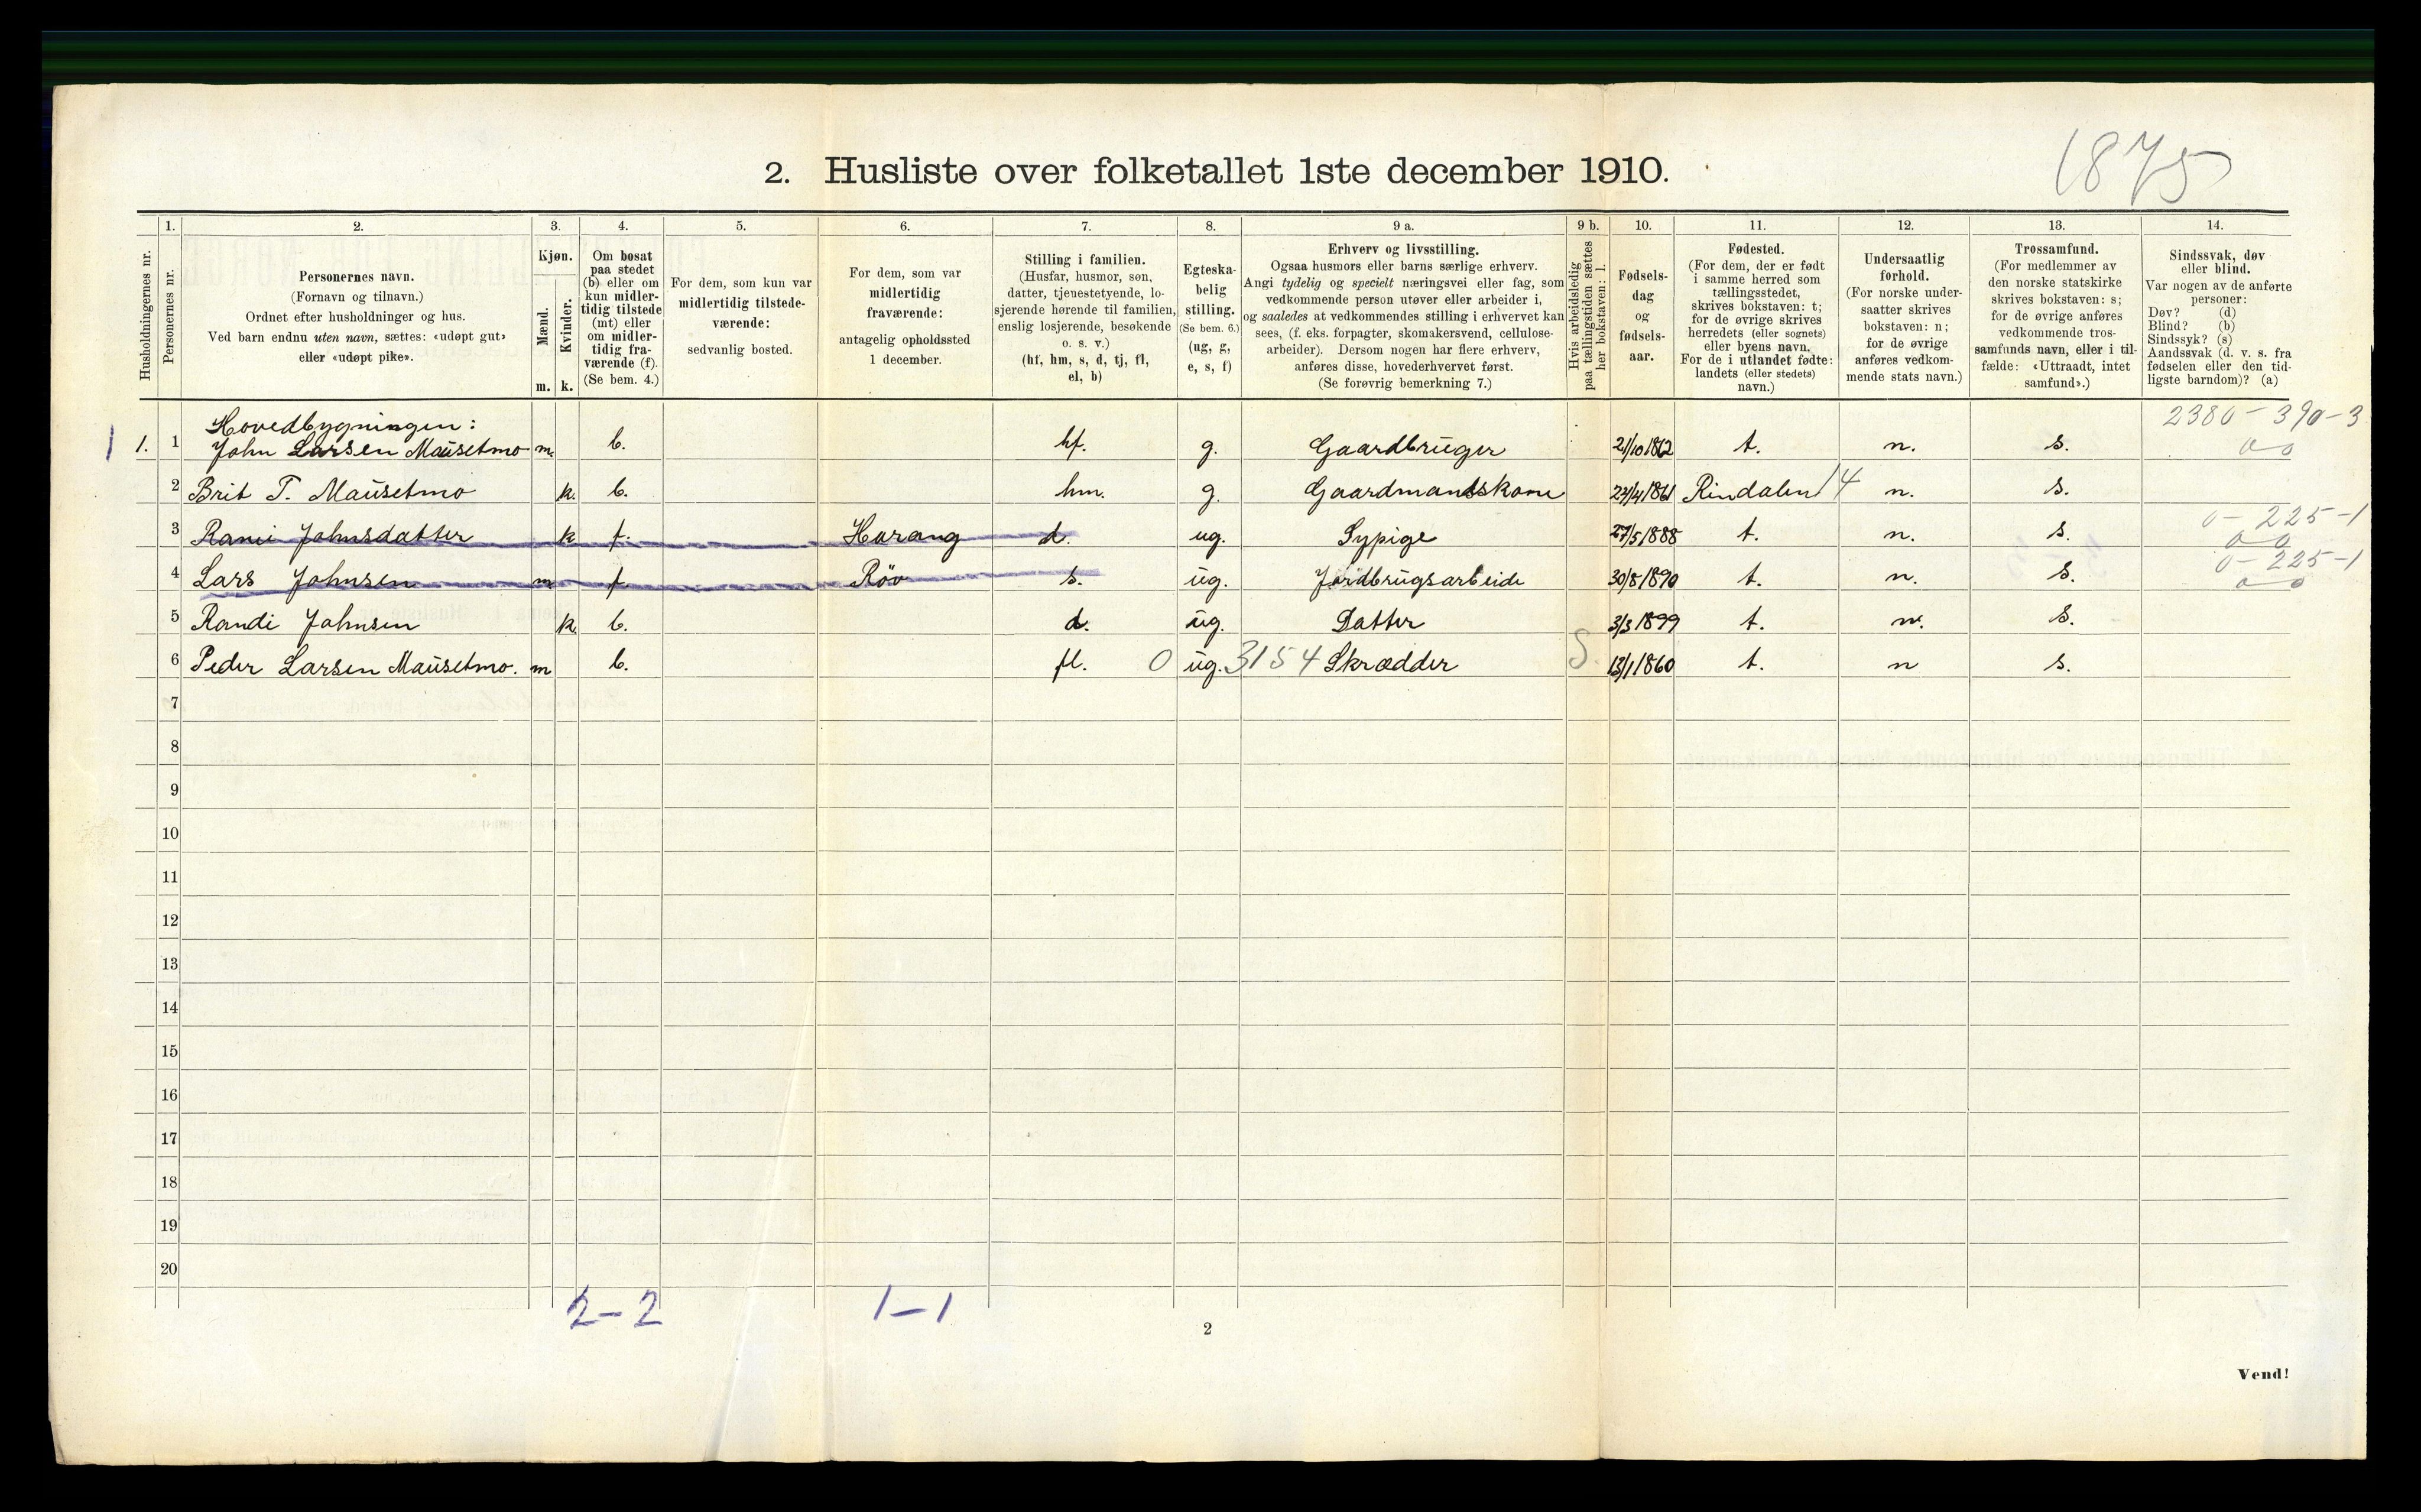 1875
2. Husliste over folketallet 1ste december 1910.
Husholdningernes nr.
1.
Personernes nr.
2.
Personernes navn.
(Fornavn og tilnavn.)
Ordnet efter husholdninger og hus.
Ved barn endnu uten navn, sættes: «udøpt gut»
eller «udøpt pike».
3.
Kjøn.
Mænd.
Kvinder.
m. k.
4.
Om bosat
paa stedet
(b) eller om
kun midler-
tidig tilstede
(mt) eller
om midler-
tidig fra-
værende (f).
(Se bem. 4.)
5.
For dem, som kun var
midlertidig tilstede-
værende:
sedvanlig bosted.
6.
For dem, som var
midlertidig
fraværende:
antagelig opholdssted
1 december.
7.
Stilling i familien.
(Husfar, husmor, søn,
datter, tjenestetyende, lo-
sjerende hørende til familien,
enslig losjerende, besøkende
o. s. v.)
(hf, hm, s, d, tj, fl,
el, b)
8.
Egteska-
belig
stilling.
(Se bem. 6.)
(ug, g,
e, s, f)
9 a.
Erhverv og livsstilling.
Ogsaa husmors eller barns særlige erhverv.
Angi tydelig og specielt næringsvei eller fag, som
vedkommende person utøver eller arbeider i,
og saaledes at vedkommendes stilling i erhvervet kan
sees, (f. eks. forpagter, skomakersvend, cellulose-
arbeider). Dersom nogen har flere erhverv,
anføres disse, hovederhvervet først.
(Se forøvrig bemerkning 7.)
9 b.
Hvis arbeidsledig
paa tællingstiden sættes
her bokstaven: l.
10.
Fødsels-
dag
og
fødsels-
aar.
11.
Fødested.
(For dem, der er født
i samme herred som
tællingsstedet,
skrives bokstaven: t;
for de øvrige skrives
herredets (eller sognets)
eller byens navn.
For de i utlandet fødte:
landets (eller stedets)
navn.)
12.
Undersaatlig
forhold.
(For norske under-
saatter skrives
bokstaven: n;
for de øvrige
anføres vedkom-
mende stats navn.)
13.
Trossamfund.
(For medlemmer av
den norske statskirke
skrives bokstaven: s;
for de øvrige anføres
vedkommende tros-
samfunds navn, eller i til-
fælde: «Uttraadt, intet
samfund».)
14.
Sindssvak, døv
eller blind.
Var nogen av de anførte
personer:
Døv? (d)
Blind? (b)
Sindssyk? (s)
Aandssvak (d. v. s. fra
fødselen eller den tid-
ligste barndom)? (a)
Hovedbygningen: 2380 - 390 - 3
1 1. 1 John Larsen Mausetmo m. b. hf. g. Gaardbruger 21/10 1862 t. n. s. 0 0
2 Brit T. Mausetmo k. b. hm. g. Gaardmandskone 24/4 1861 Rindalen 14 n. s.
0 - 225 - 1
3 Rani Johnsdatter k f. Harang d. ug. Sypige 27/5 1888 t. n. s. 0 0
0 - 225 - 1
4 Lars Johnsen m f Röv s. ug. Jordbrugsarbeide 30/8 1890 t. n. s. 0 0
5 Randi Johnsen k. b. d. ug. Datter 3/3 1899 t. n. s.
6 Peder Larsen Mausetmo. m b. fl. 0 ug. 3154 Skrædder S. 13/1 1860 t. n s.
7
8
9
10
11
12
13
14
15
16
17
18
19
20
2-2 1-1
2
Vend!